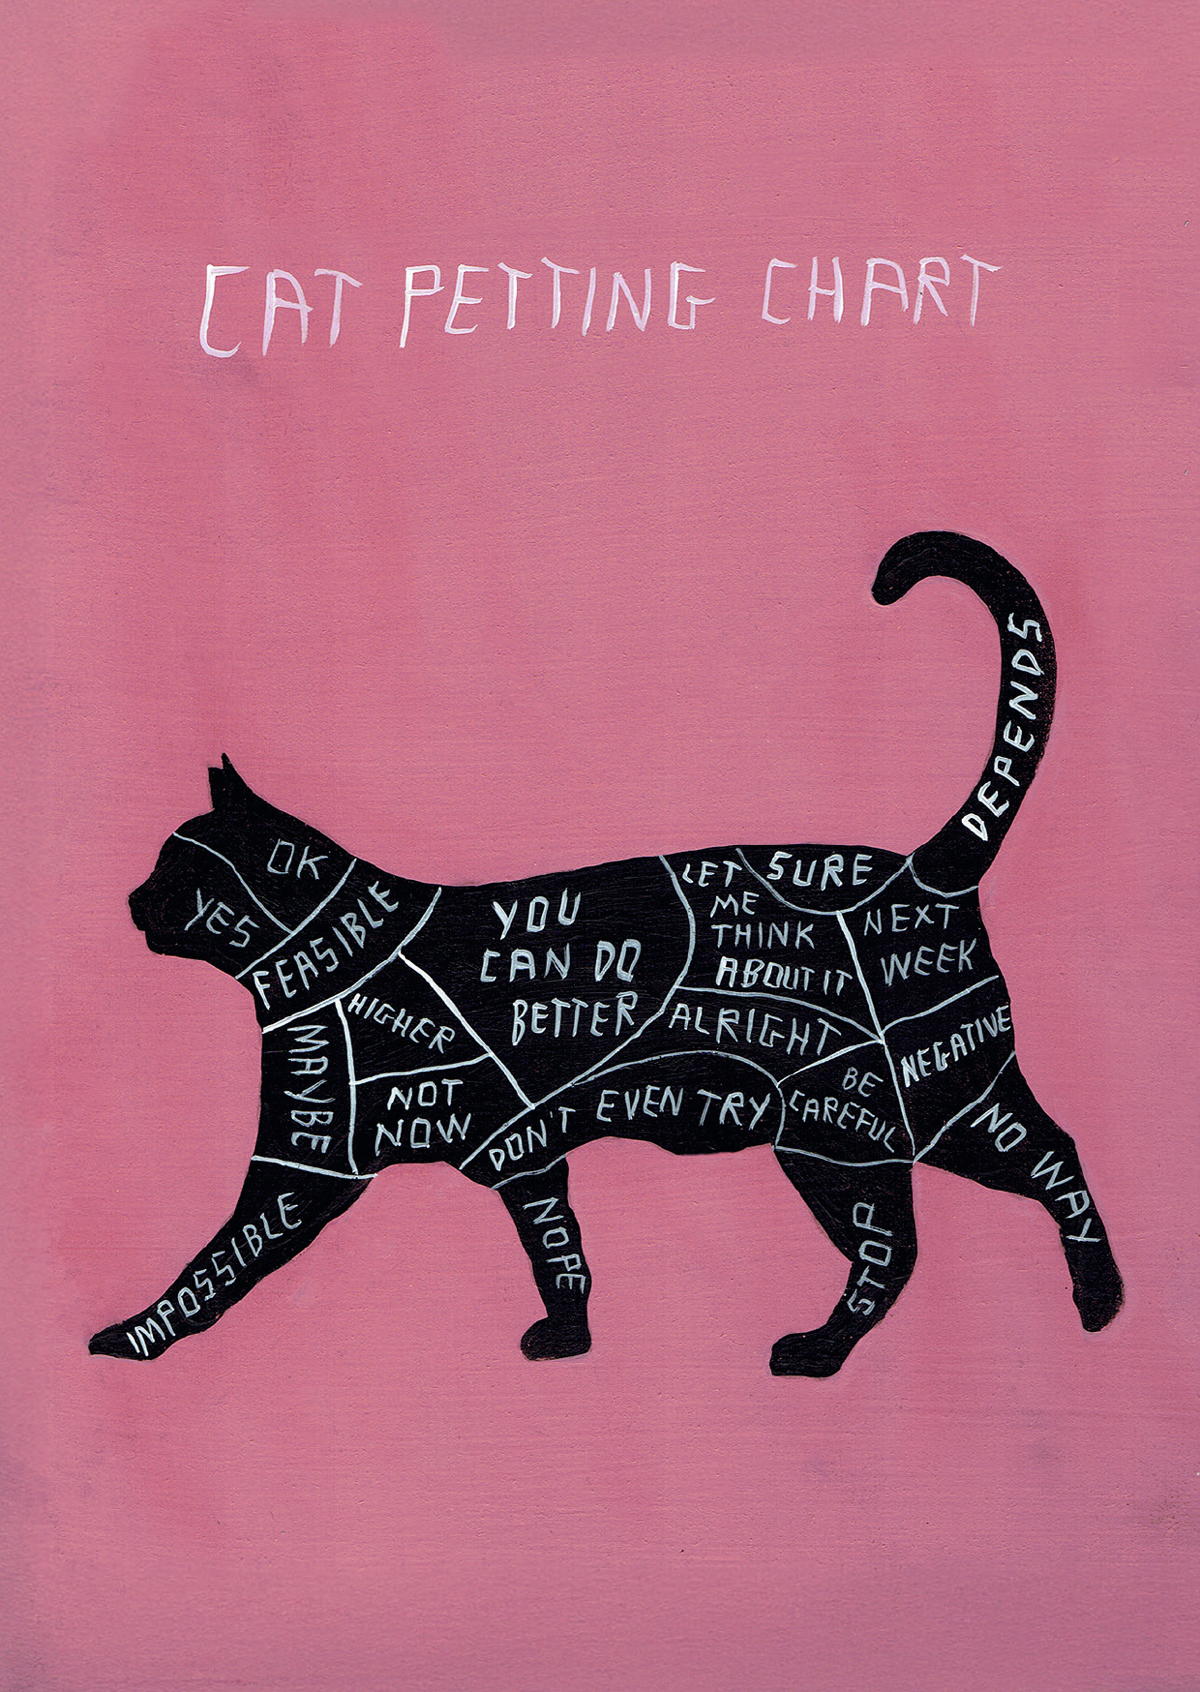 CAT PETTING CHART
DEPENDS
OK
YES
FEASIBLE
HIGHER
MAYBE
NOT
NOW
YOU
CAN DO
BETTER
LET
ME
THINK
ABOUT IT
SURE
NEXT
WEEK
ALRIGHT
NEGATIVE
BE
CAREFUL
DON'T EVEN TRY
NO WAY
IMPOSSIBLE
NOPE
STOP